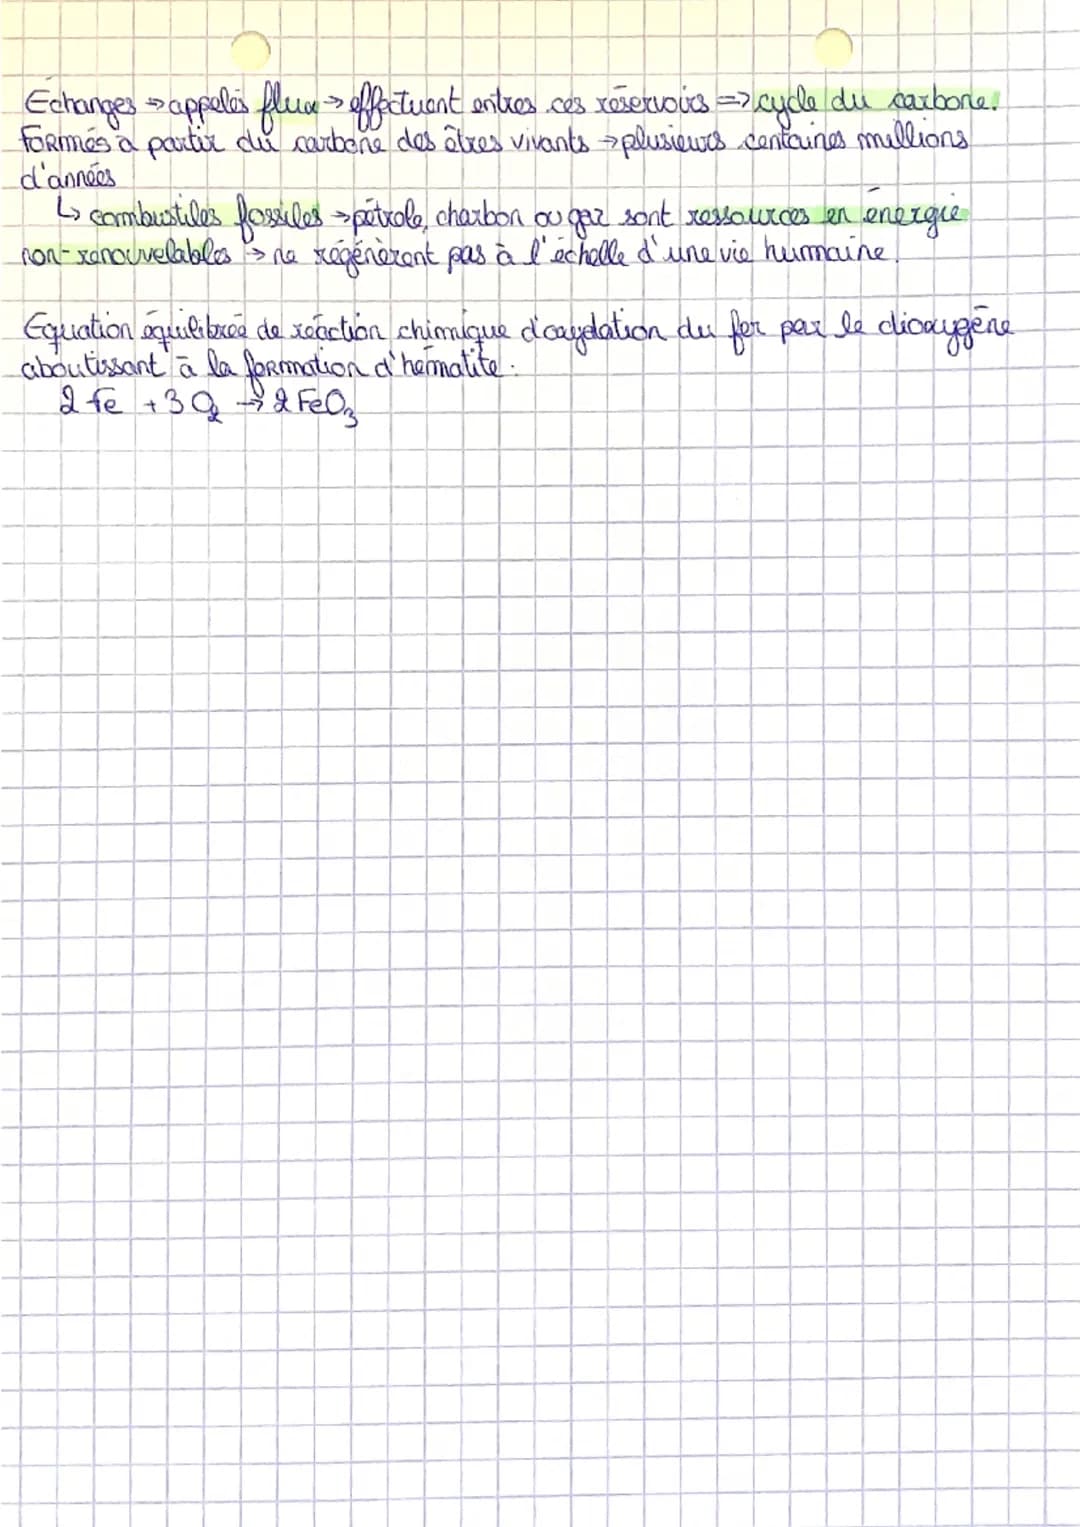 Echanges → appelés flux → effectuent entres ces réservoirs => cycle du carbone.
Formés à partir du carbone des êtres vivants → plusieurs centaines millions
d'années
↳ combustiles fossiles → pétrole, charbon ou gaz sont ressources en énergie
non-renouvelables → ne régénèrent pas à l'échelle d'une vie humaine.
Equation équilibrée de réaction chimique d'oxydation du fer par le dioxygène
aboutissant à la formation d'hématite :
2 Fe + 3 O₂ → 2 FeO₃